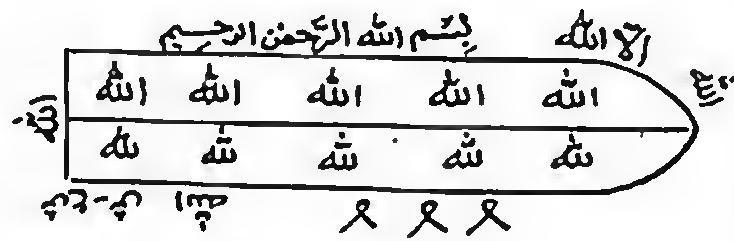 بِسْمِ الله الرَّحمٰن الرحيم
إلا الله
الله الله الله الله الله
لله لله لله لله لله
الله
الله
الله